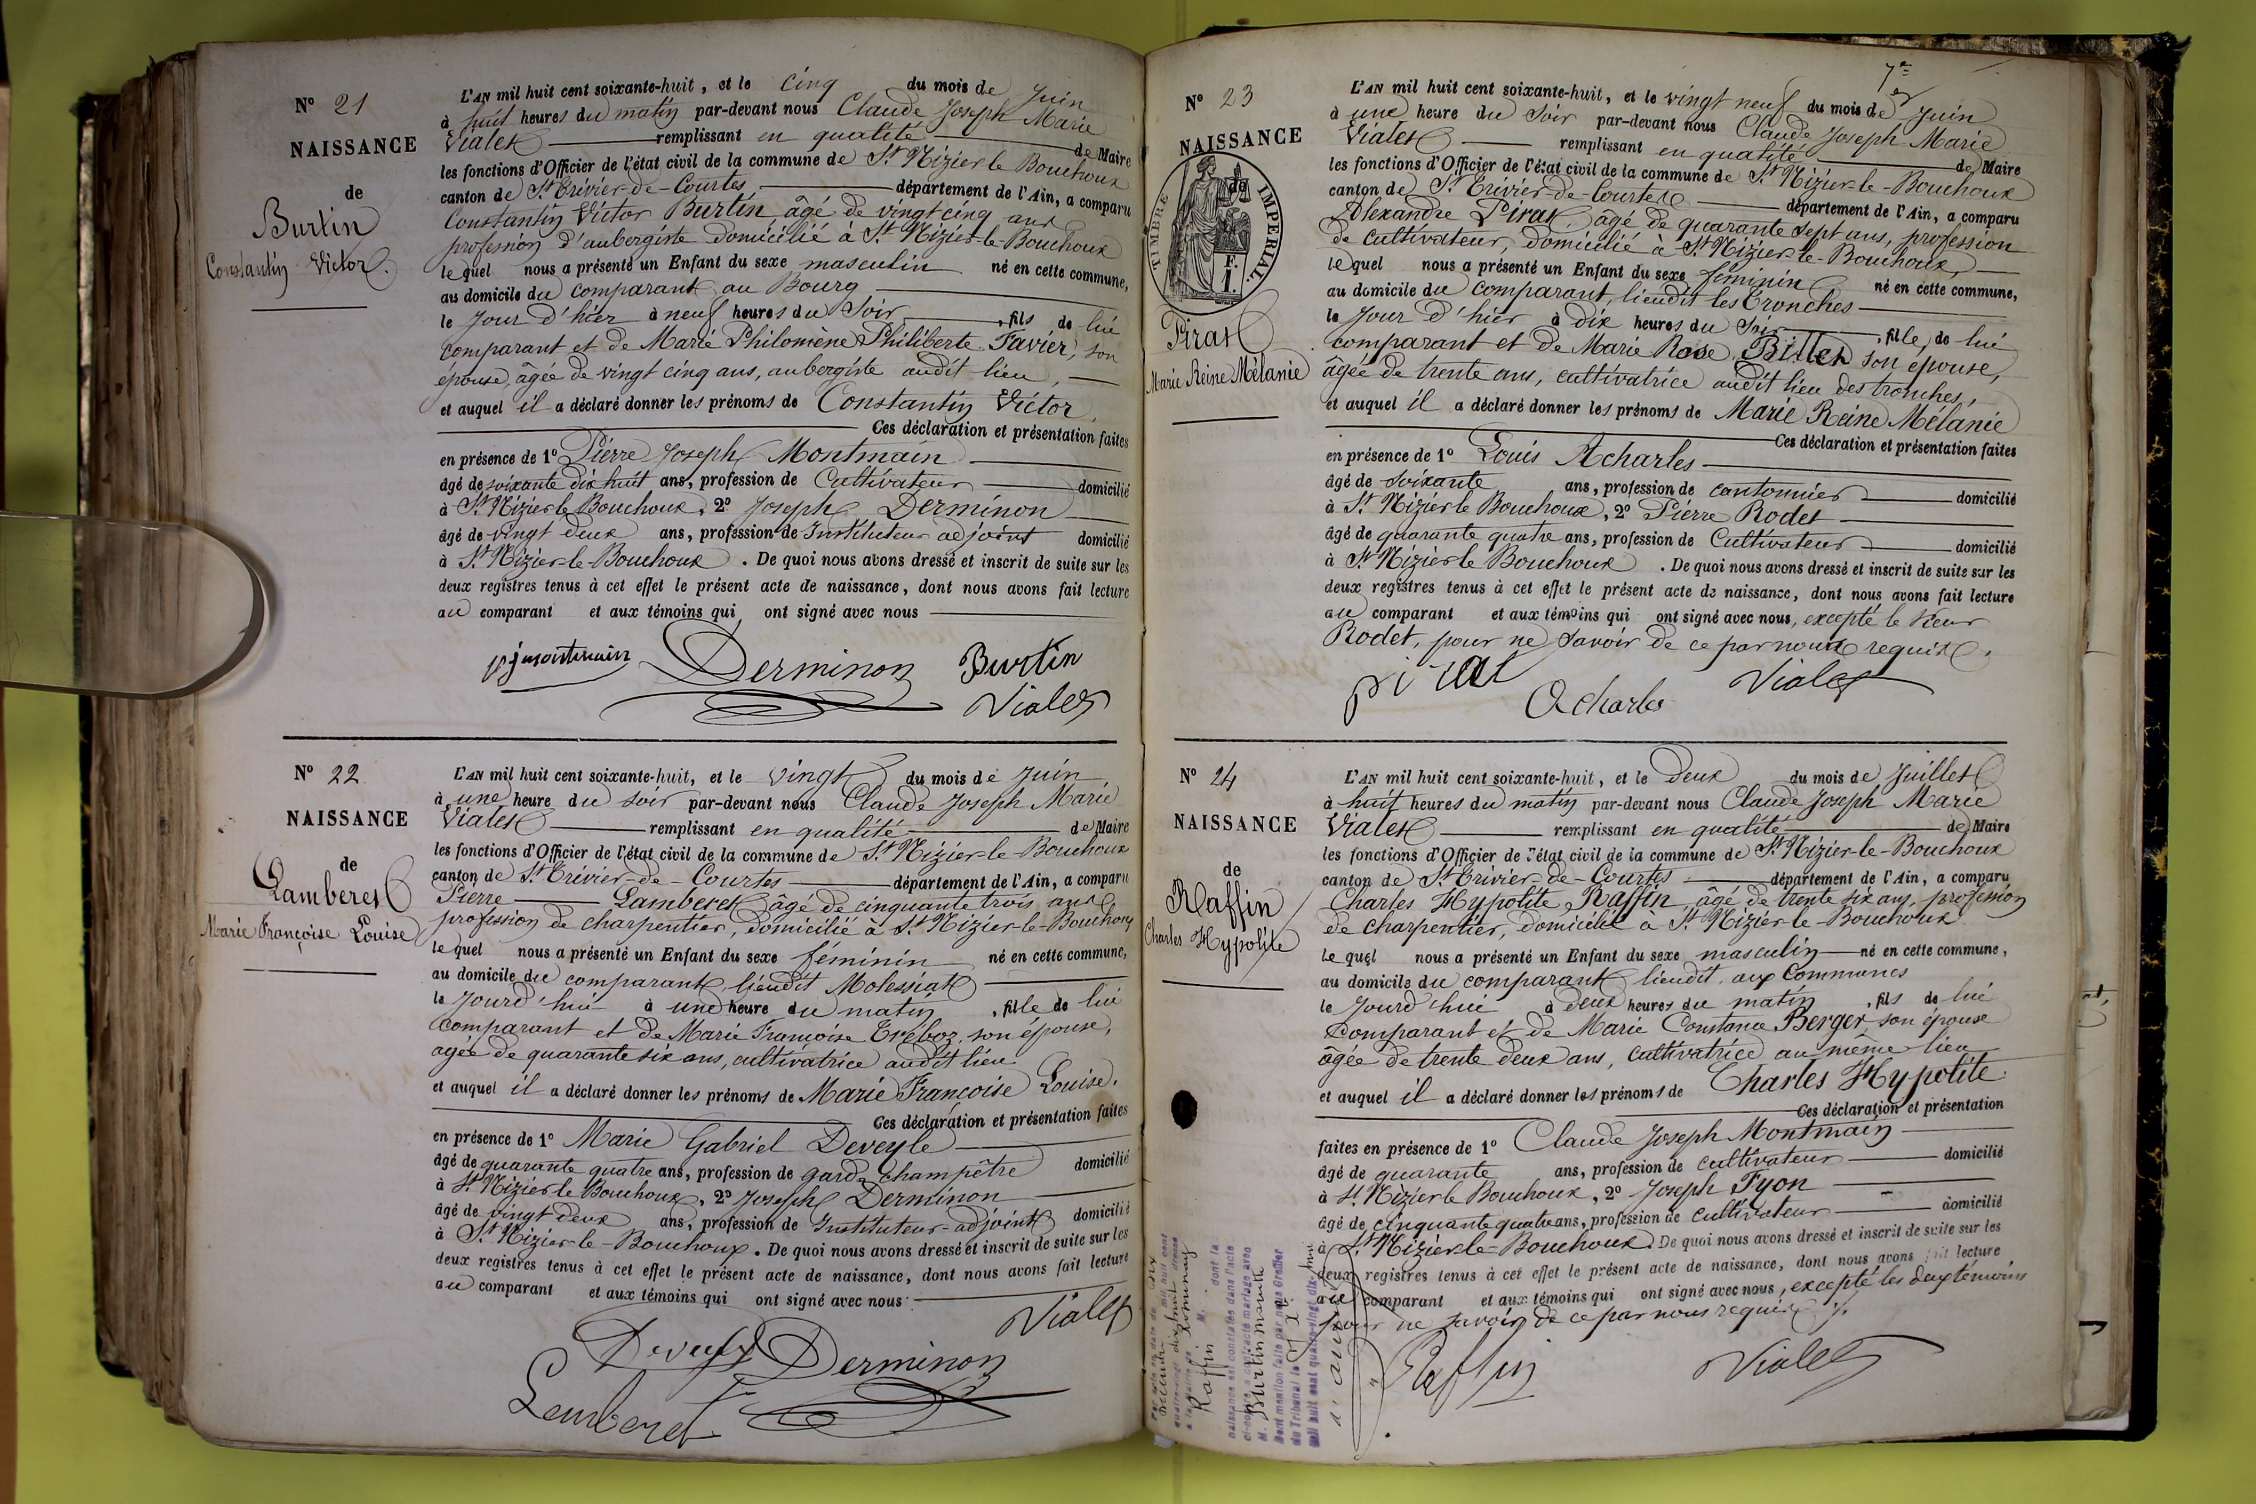 N° 21
NAISSANCE
de
Burtin
Constantin Victor.
L'AN mil huit cent soixante-huit, et le cinq du mois de Juin
à huit heures du matin par-devant nous Claude Joseph Marie
Vialet remplissant en qualité de Maire
les fonctions d'Officier de l'état civil de la commune de St Nizier le Bouchoux
canton de St Trivier-de-Courtes département de l'Ain, a comparu
Constantin Victor Burtin, âgé de vingt cinq ans
profession d'aubergiste domicilié à St Nizier-le-Bouchoux
lequel nous a présenté un Enfant du sexe masculin né en cette commune,
au domicile du comparant, au Bourg
le jour d'hier à neuf heures du Soir, fils de lui
comparant et de Marie Philomène Philiberte Favier, son
épouse, âgée de vingt cinq ans, aubergiste audit lieu,
et auquel il a déclaré donner les prénoms de Constantin Victor,
Ces déclaration et présentation faites
en présence de 1° Pierre Joseph Montmain
âgé de soixante dix huit ans, profession de Cultivateur domicilié
à St Nizier le Bouchoux, 2° Joseph Derminon
âgé de vingt deux ans, profession de Instituteur adjoint domicilié
à St Nizier-le-Bouchoux. De quoi nous avons dressé et inscrit de suite sur les
deux registres tenus à cet effet le présent acte de naissance, dont nous avons fait lecture
au comparant et aux témoins qui ont signé avec nous
pjmontmain Derminon Burtin
Vialet
N° 22
NAISSANCE
de
Lamberet
Marie Françoise Louise
L'AN mil huit cent soixante-huit, et le vingt du mois de Juin,
à une heure du soir par-devant nous Claude Joseph Marie
Vialet remplissant en qualité de Maire
les fonctions d'Officier de l'état civil de la commune de St Nizier-le-Bouchoux
canton de St Trivier-de-Courtes département de l'Ain, a comparu
Pierre Lamberet âgé de cinquante trois ans,
profession de charpentier, domicilié à St Nizier-le-Bouchoux
lequel nous a présenté un Enfant du sexe féminin né en cette commune,
au domicile du comparant, lieudit Molessiat
le jourd'hui à une heure du matin, fille de lui
comparant et de Marie Françoise Tréboz, son épouse,
agée de quarante six ans, cultivatrice audit lieu
et auquel il a déclaré donner les prénoms de Marie Françoise Louise.
Ces déclaration et présentation faites
en présence de 1° Marie Gabriel Deveyle
âgé de quarante quatre ans, profession de garde champêtre domicilié
à St Nizier le Bouchoux, 2° Joseph Derminon
âgé de vingt deux ans, profession de Instituteur-adjoint domicilié
à St Nizier-le-Bouchoux. De quoi nous avons dressé et inscrit de suite sur les
deux registres tenus à cet effet le présent acte de naissance, dont nous avons fait lecture
au comparant et aux témoins qui ont signé avec nous.
Vialet
Deveyle Derminon
Lamberet
7e
N° 23
NAISSANCE
de
TIMBRE IMPERIAL.
F.
1
Pirat
Marie Reine Mélanie
L'AN mil huit cent soixante-huit, et le vingt neuf du mois de Juin
à une heure du Soir par-devant nous Claude Joseph Marie
Vialet remplissant en qualité de Maire
les fonctions d'Officier de l'état civil de la commune de St Nizier-le-Bouchoux
canton de St Trivier-de-Courtes département de l'Ain, a comparu
Alexandre Pirat, âgé de quarante sept ans, profession
de cultivateur, domicilié à St Nizier-le-Bouchoux,
lequel nous a présenté un Enfant du sexe féminin né en cette commune,
au domicile du comparant, lieudit les Tronches
le jour d'hier à dix heures du Soir, fille, de lui
comparant et de Marie Rose Billet son épouse,
âgée de trente ans, cultivatrice audit lieu des tronches,
et auquel il a déclaré donner les prénoms de Marie Reine Mélanie
Ces déclaration et présentation faites
en présence de 1° Louis Acharles
âgé de Soixante ans, profession de cantonnier domicilié
à St Nizier le Bouchoux, 2° Pierre Rodet
âgé de quarante quatre ans, profession de Cultivateur domicilié
à St Nizier le Bouchoux. De quoi nous avons dressé et inscrit de suite sur les
deux registres tenus à cet effet le présent acte de naissance, dont nous avons fait lecture
au comparant et aux témoins qui ont signé avec nous, excepté le sieur
Rodet, pour ne savoir de ce par nous requis.
pirat Acharles Vialet
N° 24
NAISSANCE
de
Raffin
Charles Hypolite
L'AN mil huit cent soixante-huit, et le deux du mois de Juillet
à huit heures du matin par-devant nous Claude Joseph Marie
Vialet remplissant en qualité de Maire
les fonctions d'Officier de l'état civil de la commune de St Nizier-le-Bouchoux
canton de St Trivier-de-Courtes département de l'Ain, a comparu
Charles Hypolite Raffin, âgé de trente six ans, profession
de charpentier, domicilié à St Nizier-le-Bouchoux
lequel nous a présenté un Enfant du sexe masculin né en cette commune,
au domicile du comparant lieudit aux Communes
le jourd'hui à deux heures du matin, fils de lui
comparant et de Marie Constance Berger, son épouse
âgée de trente deux ans, cultivatrice au même lieu
et auquel il a déclaré donner les prénoms de Charles Hypolite.
Ces déclaration et présentation
faites en présence de 1° Claude Joseph Montmain
âgé de quarante ans, profession de cultivateur domicilié
à St Nizier le Bouchoux, 2° Joseph Fyon
âgé de cinquante quatre ans, profession de cultivateur domicilié
à St Nizier-le-Bouchoux. De quoi nous avons dressé et inscrit de suite sur les
deux registres tenus à cet effet le présent acte de naissance, dont nous avons fait lecture
au comparant et aux témoins qui ont signé avec nous, excepté les deux témoins
pour ne savoir de ce par nous requis.
Raffin Vialet
Raffin M. dont la
naissance est constatée dans l'acte
ci-contre, a contracté mariage avec
M.
Dont mention faite par nous Greffier
du Tribunal
mil huit cent quatre-vingt-dix-